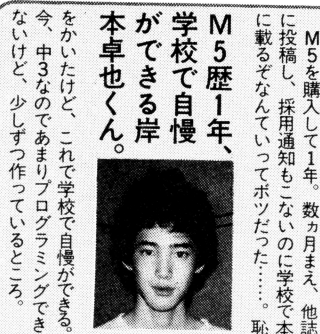 M5を購入して1年。数ヵ月まえ、他誌
に投稿し、採用通知もこないのに学校で本
に載るぞなんていってボツだった……。恥
M5歴1年、
学校で自慢
ができる岸
本卓也くん。
をかいたけど、これで学校で自慢ができる。
今、中3なのであまりプログラミングでき
ないけど、少しずつ作っているところ。